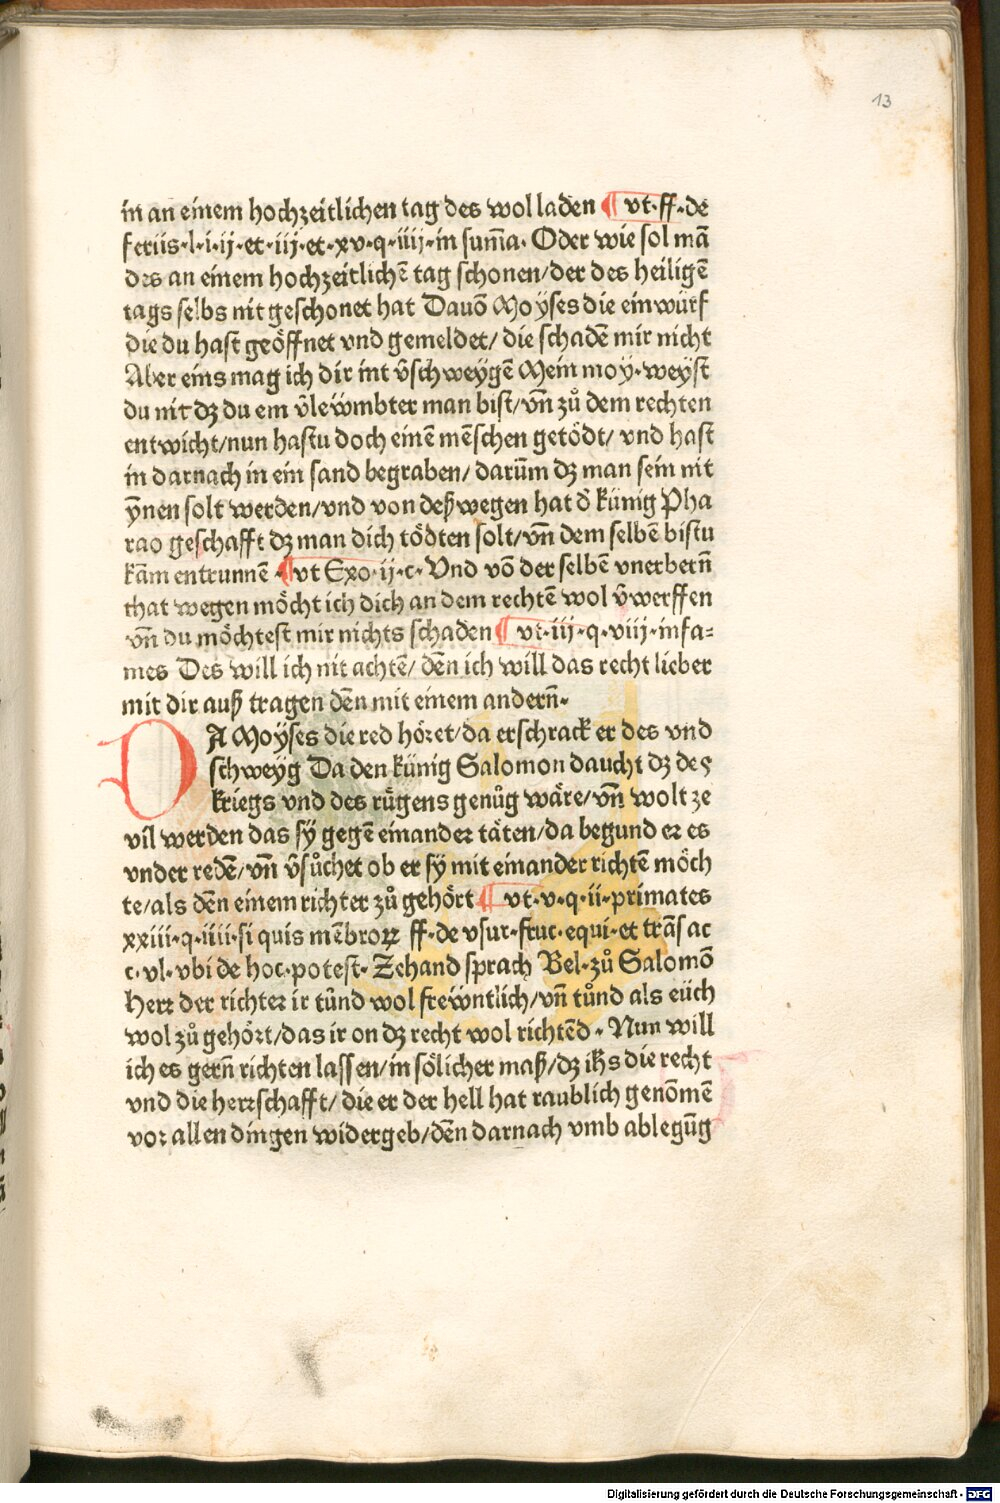 13
in an einem hochzeitlichen tag des wol laden ¶ vt·ff·de
feriis·l·i·ij·et·iij·et·xv·q·iiij·in sum̄a· Oder wie sol mā
des an einem hochzeitlichē tag schonen/der des heiligē
tags selbs nit geschonet hat Dauō Moÿses die einwürf
die du hast geöffnet vnd gemeldet/ die schadē mir nicht
Aber eins mag ich dir nit v̄schweÿgē Mein moÿ·weÿst
du nit dz du ein v̄lewmbter man bist/vn̄ zů dem rechten
entwicht/nun hastu doch einē mēschen getödt/ vnd hast
in darnach in ein sand begraben/ darūm dz man sein nit
ÿnnen solt werden/vnd von deß wegen hat d̄ künig Pha
rao geschafft dz man dich tödten solt/vn̄ dem selbē bistu
kām entrunnē ·¶vt Exo·ij·c· Vnd vō der selbē vnerbern̄
that wegen möcht ich dich an dem rechtē wol v̄werffen
vn̄ du möchtest mir nichts schaden ¶ vt·iij·q·viij·infa=
mes Des will ich nit achtē/ dēn ich will das recht lieber
mit dir auß tragen dēn mit einem andern̄·
DA Moÿses die red höret/da erschrack er des vnd
schweÿg Da den künig Salomon daucht dz des
kriegs vnd des rügens genůg wäre/vn̄ wolt ze
vil werden das sÿ gegē einander täten/da begund er es
vnder redē/vn̄ v̄sůchet ob er sÿ mit einander richtē möch
te/als dēn einem richter zů gehört ¶ vt·v·q·ii·primates
xxiii·q·iiii·si quis mēbroꝝ ff·de vsur·fruc·equi·et trāsac
c·vl·vbi de hoc·potest· Zehand sprach Bel·zů Salomō
Herr der richter ir tůnd wol frewntlich/vn̄ tůnd als eüch
wol zů gehört/das ir on dz recht wol richtēd· Nun will
ich es gern̄ richten lassen/in sölicher maß/dz ihs die recht
vnd die herrschafft/die er der hell hat raublich genōmē
vor allen dingen widergeb/dēn darnach vmb ablegūg
Digitalisierung gefördert durch die Deutsche Forschungsgemeinschaft - DFG